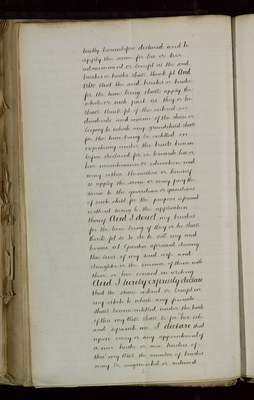 lastly hereinbefore declared and to
apply the same for his or her
advancement or benefit as the said
trustees or trustee shall think fit And
Also that the said trustees or trustee
for the time being shall apply the
whole or such part as they or he
shall think fit of the annual
dividends and income of the share or
legacy to which any grandchild shall
for the time being be entitled in
expectancy under the trusts herein
before declared for or towards his or
her maintenance or education and
may either themselves or himself
so apply the same or may pay the
same to the guardian or guardians
of such child for the purpose aforesaid
without seeing to the application
thereof And I direct my trustees
for the time being if they or he shall
think fit so to do to sell my said
house at aforesaid during
the lives of my said wife and
daughters or the survivor of them with
their or her consent in writing
And I hereby expressly declare
that the share or benefit in
my estate to which any female
shall become entitled under the trusts
of this my Will shall be for her sole
and separate use I declare that
upon every or any appointment of
a new trustee or new trustees of
this my Will the number of trustees
may be augmented or reduced